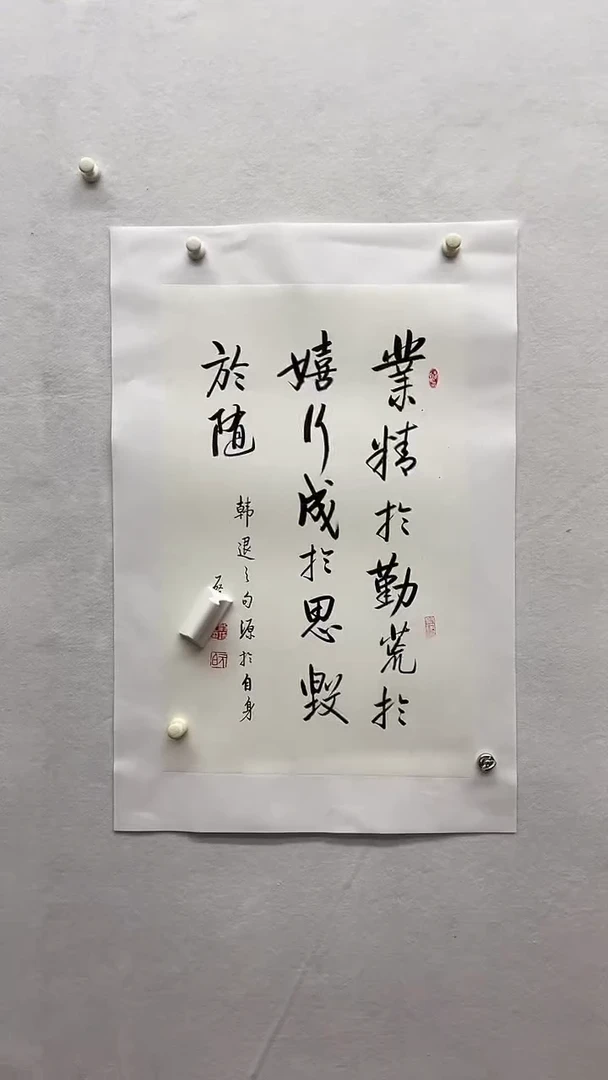 業精於勤荒於
嬉行成於思毀
於随
韩退之句源於自身